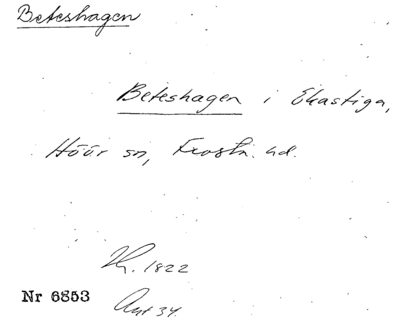 Beteshagen
Beteshagen i Ekastiga,
Höör sn, Frosta hd.
Th. 1822
Nr 6853
Avt 34.